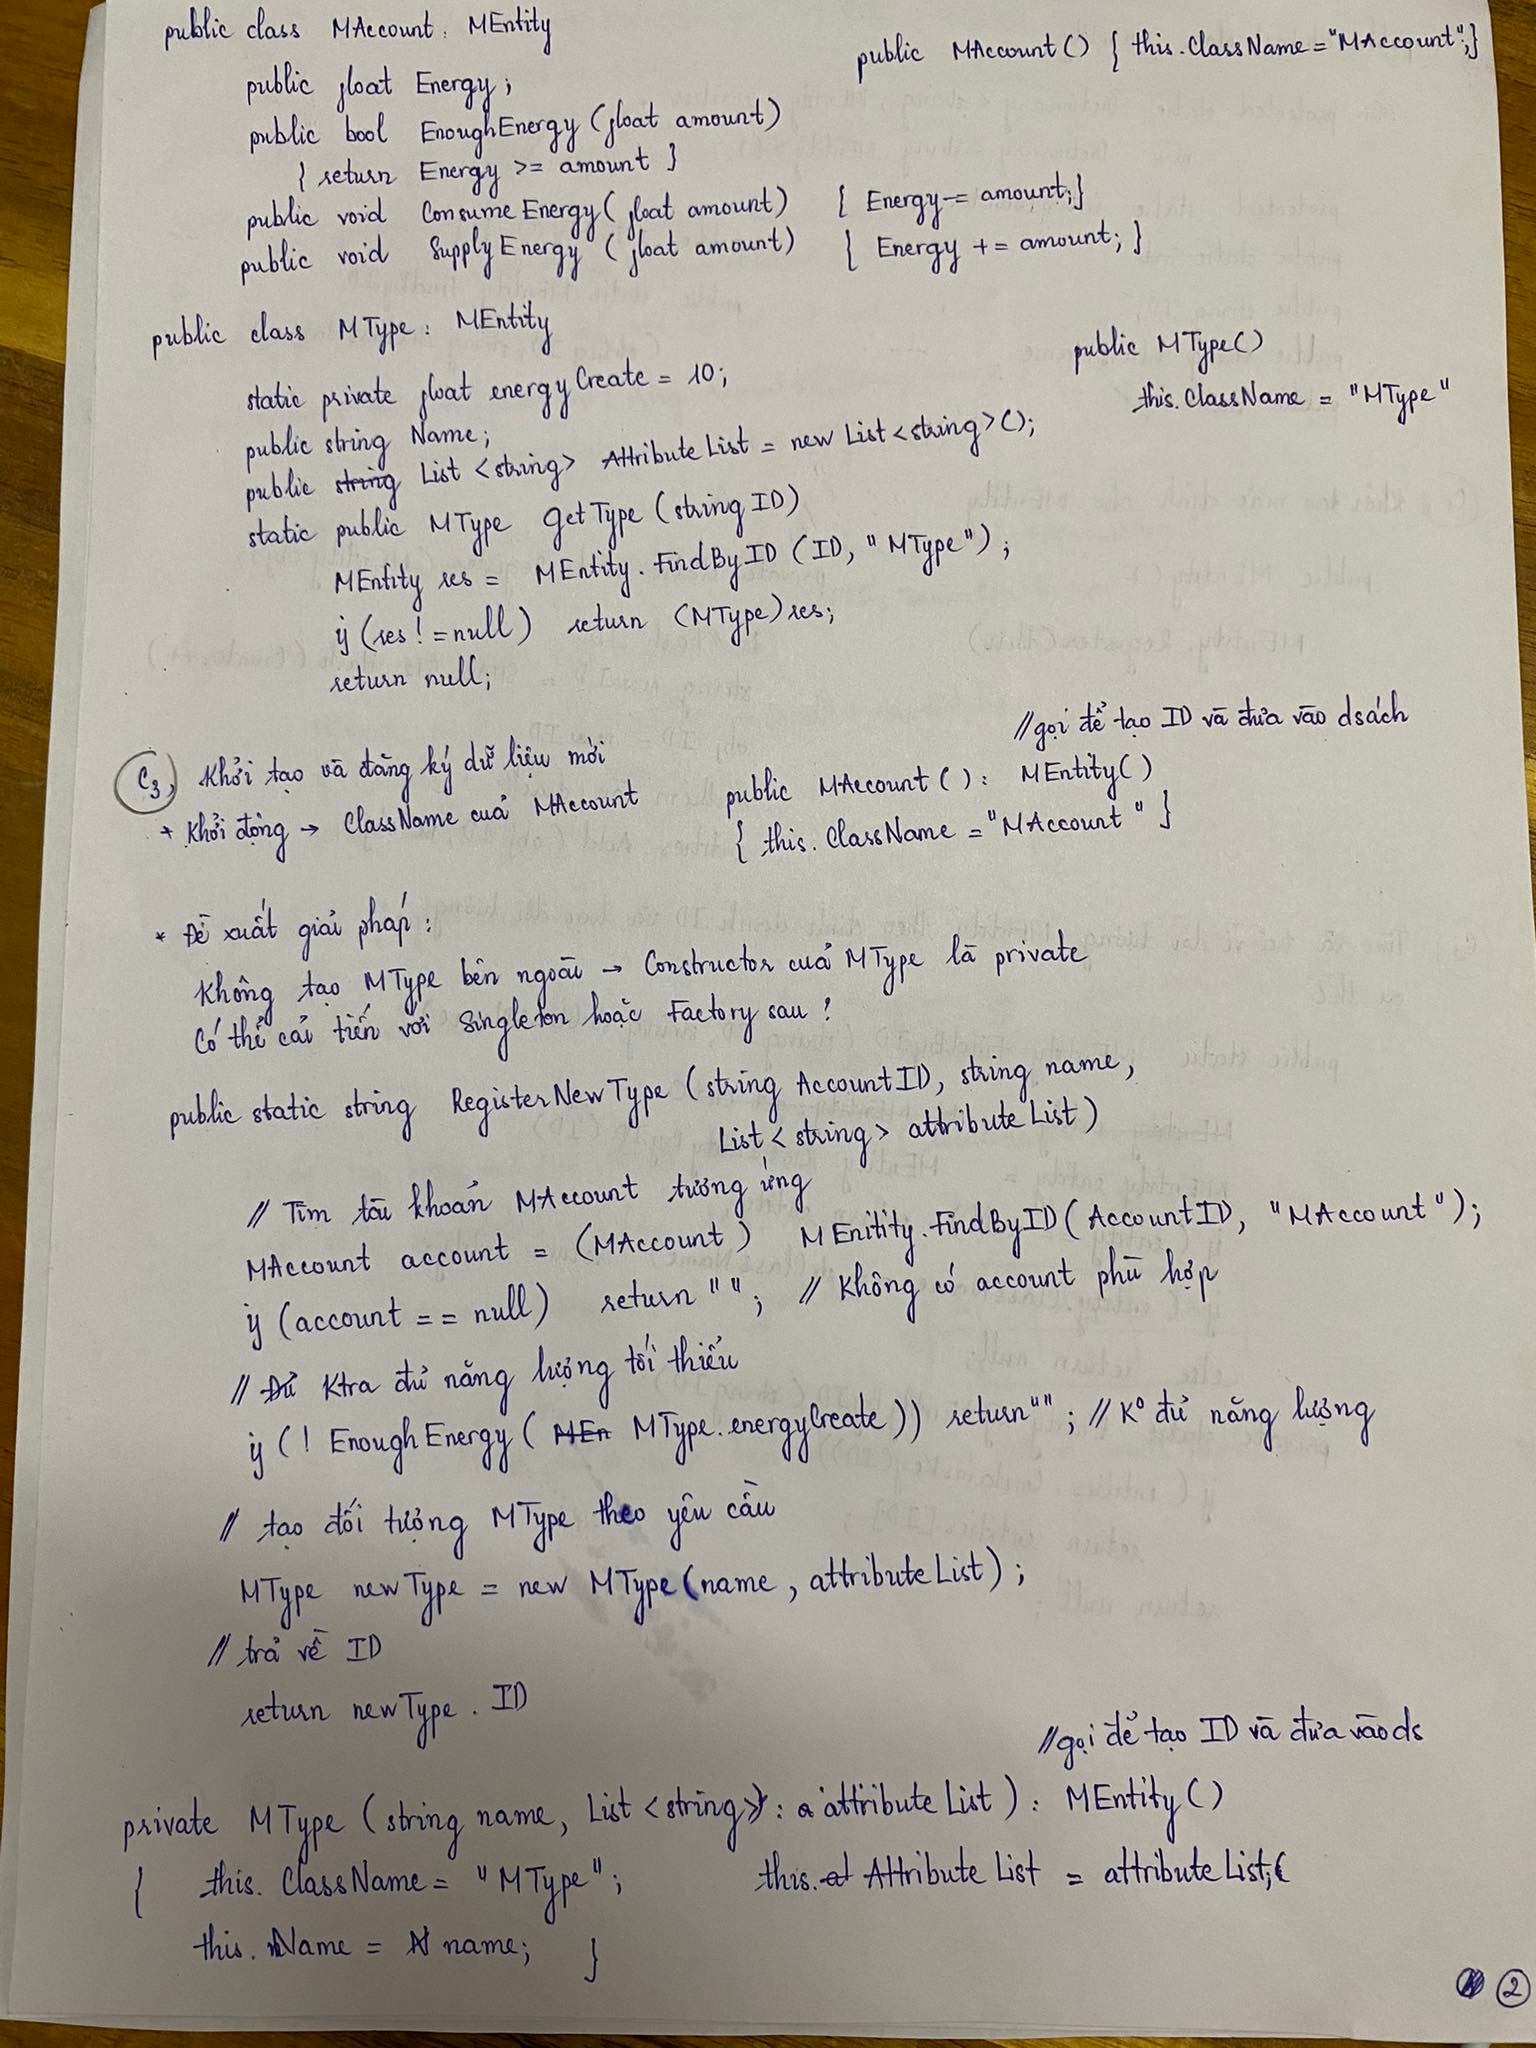 public class MAccount : MEntity
public MAccount() { this.ClassName = "MAccount"; }
public float Energy;
public bool EnoughEnergy (float amount)
{ return Energy >= amount }
public void ConsumeEnergy (float amount) { Energy -= amount; }
public void SupplyEnergy (float amount) { Energy += amount; }
public class MType : MEntity
public MType()
static private float energyCreate = 10;
this.ClassName = "MType"
public string Name;
public string List <string> AttributeList = new List<string>();
static public MType GetType (string ID)
MEntity res = MEntity.FindByID (ID, "MType");
if (res != null) return (MType) res;
return null;
//gọi để tạo ID và đưa vào dsách
C3, Khởi tạo và đăng ký dữ liệu mới
public MAccount () : MEntity()
* Khởi động → ClassName của MAccount
{ this.ClassName = "MAccount" }
* Đề xuất giải pháp :
Không tạo MType bên ngoài → Constructor của MType là private
Có thể cải tiến với Singleton hoặc Factory sau !
public static string RegisterNewType (string AccountID, string name,
List<string> attributeList)
// Tìm tài khoản MAccount tương ứng
MAccount account = (MAccount) MEnitity.FindByID (AccountID, "MAccount");
if (account == null) return ""; // Không có account phù hợp
// Đủ Ktra đủ năng lượng tối thiểu
if (! EnoughEnergy ( MEn MType.energyCreate)) return ""; // K° đủ năng lượng
// tạo đối tượng MType theo yêu cầu
MType newType = new MType (name, attributeList);
// trả về ID
return newType.ID
//gọi để tạo ID và đưa vào ds
private MType (string name, List <string> : a attributeList) : MEntity ()
{ this.ClassName = "MType"; this.at AttributeList = attributeList;
this.Name = N name; }
2